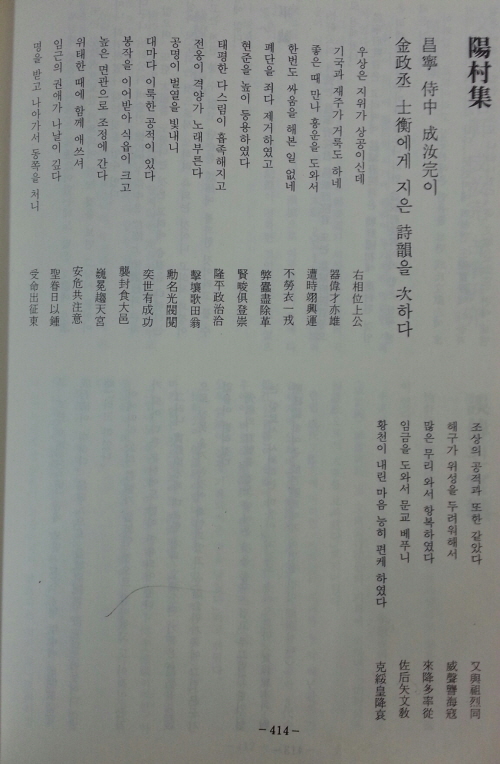 陽村集
昌寧 侍中 成汝完이
金政丞 士衡에게 지은 詩韻을 次하다
우상은 지위가 상공이신데
기국과 재주가 거룩도 하네
좋은 때 만나 흥운을 도와서
한번도 싸움을 해본 일 없네
폐단을 죄다 제거하였고
현준을 높이 등용하였다
태평한 다스림이 흡족해지고
전옹이 격양가 노래부른다
공명이 벌열을 빛내니
대마다 이룩한 공적이 있다
봉작을 이어받아 식읍이 크고
높은 면관으로 조정에 간다
위태한 때에 함께 애쓰셔
임금의 권애가 나날이 깊다
명을 받고 나아가서 동쪽을 처니
右相位上公
器偉才亦雄
遭時翊興運
不勞衣一戎
弊蠹盡除革
賢晙俱登崇
隆平政治洽
擊壤歌田翁
勳名光閥閱
奕世有成功
襲封食大邑
巍冕趨天宮
安危共注意
聖眷日以鍾
受命出征東
조상의 공적과 또한 같았다
해구가 위성을 두려워해서
많은 무리 와서 항복하였다
임금을 도와서 문교 베푸니
황천이 내린 마음 능히 편케 하였다
又與祖烈同
威聲讋海寇
來降多率從
佐后矢文敎
克綏皇降衷
-414-